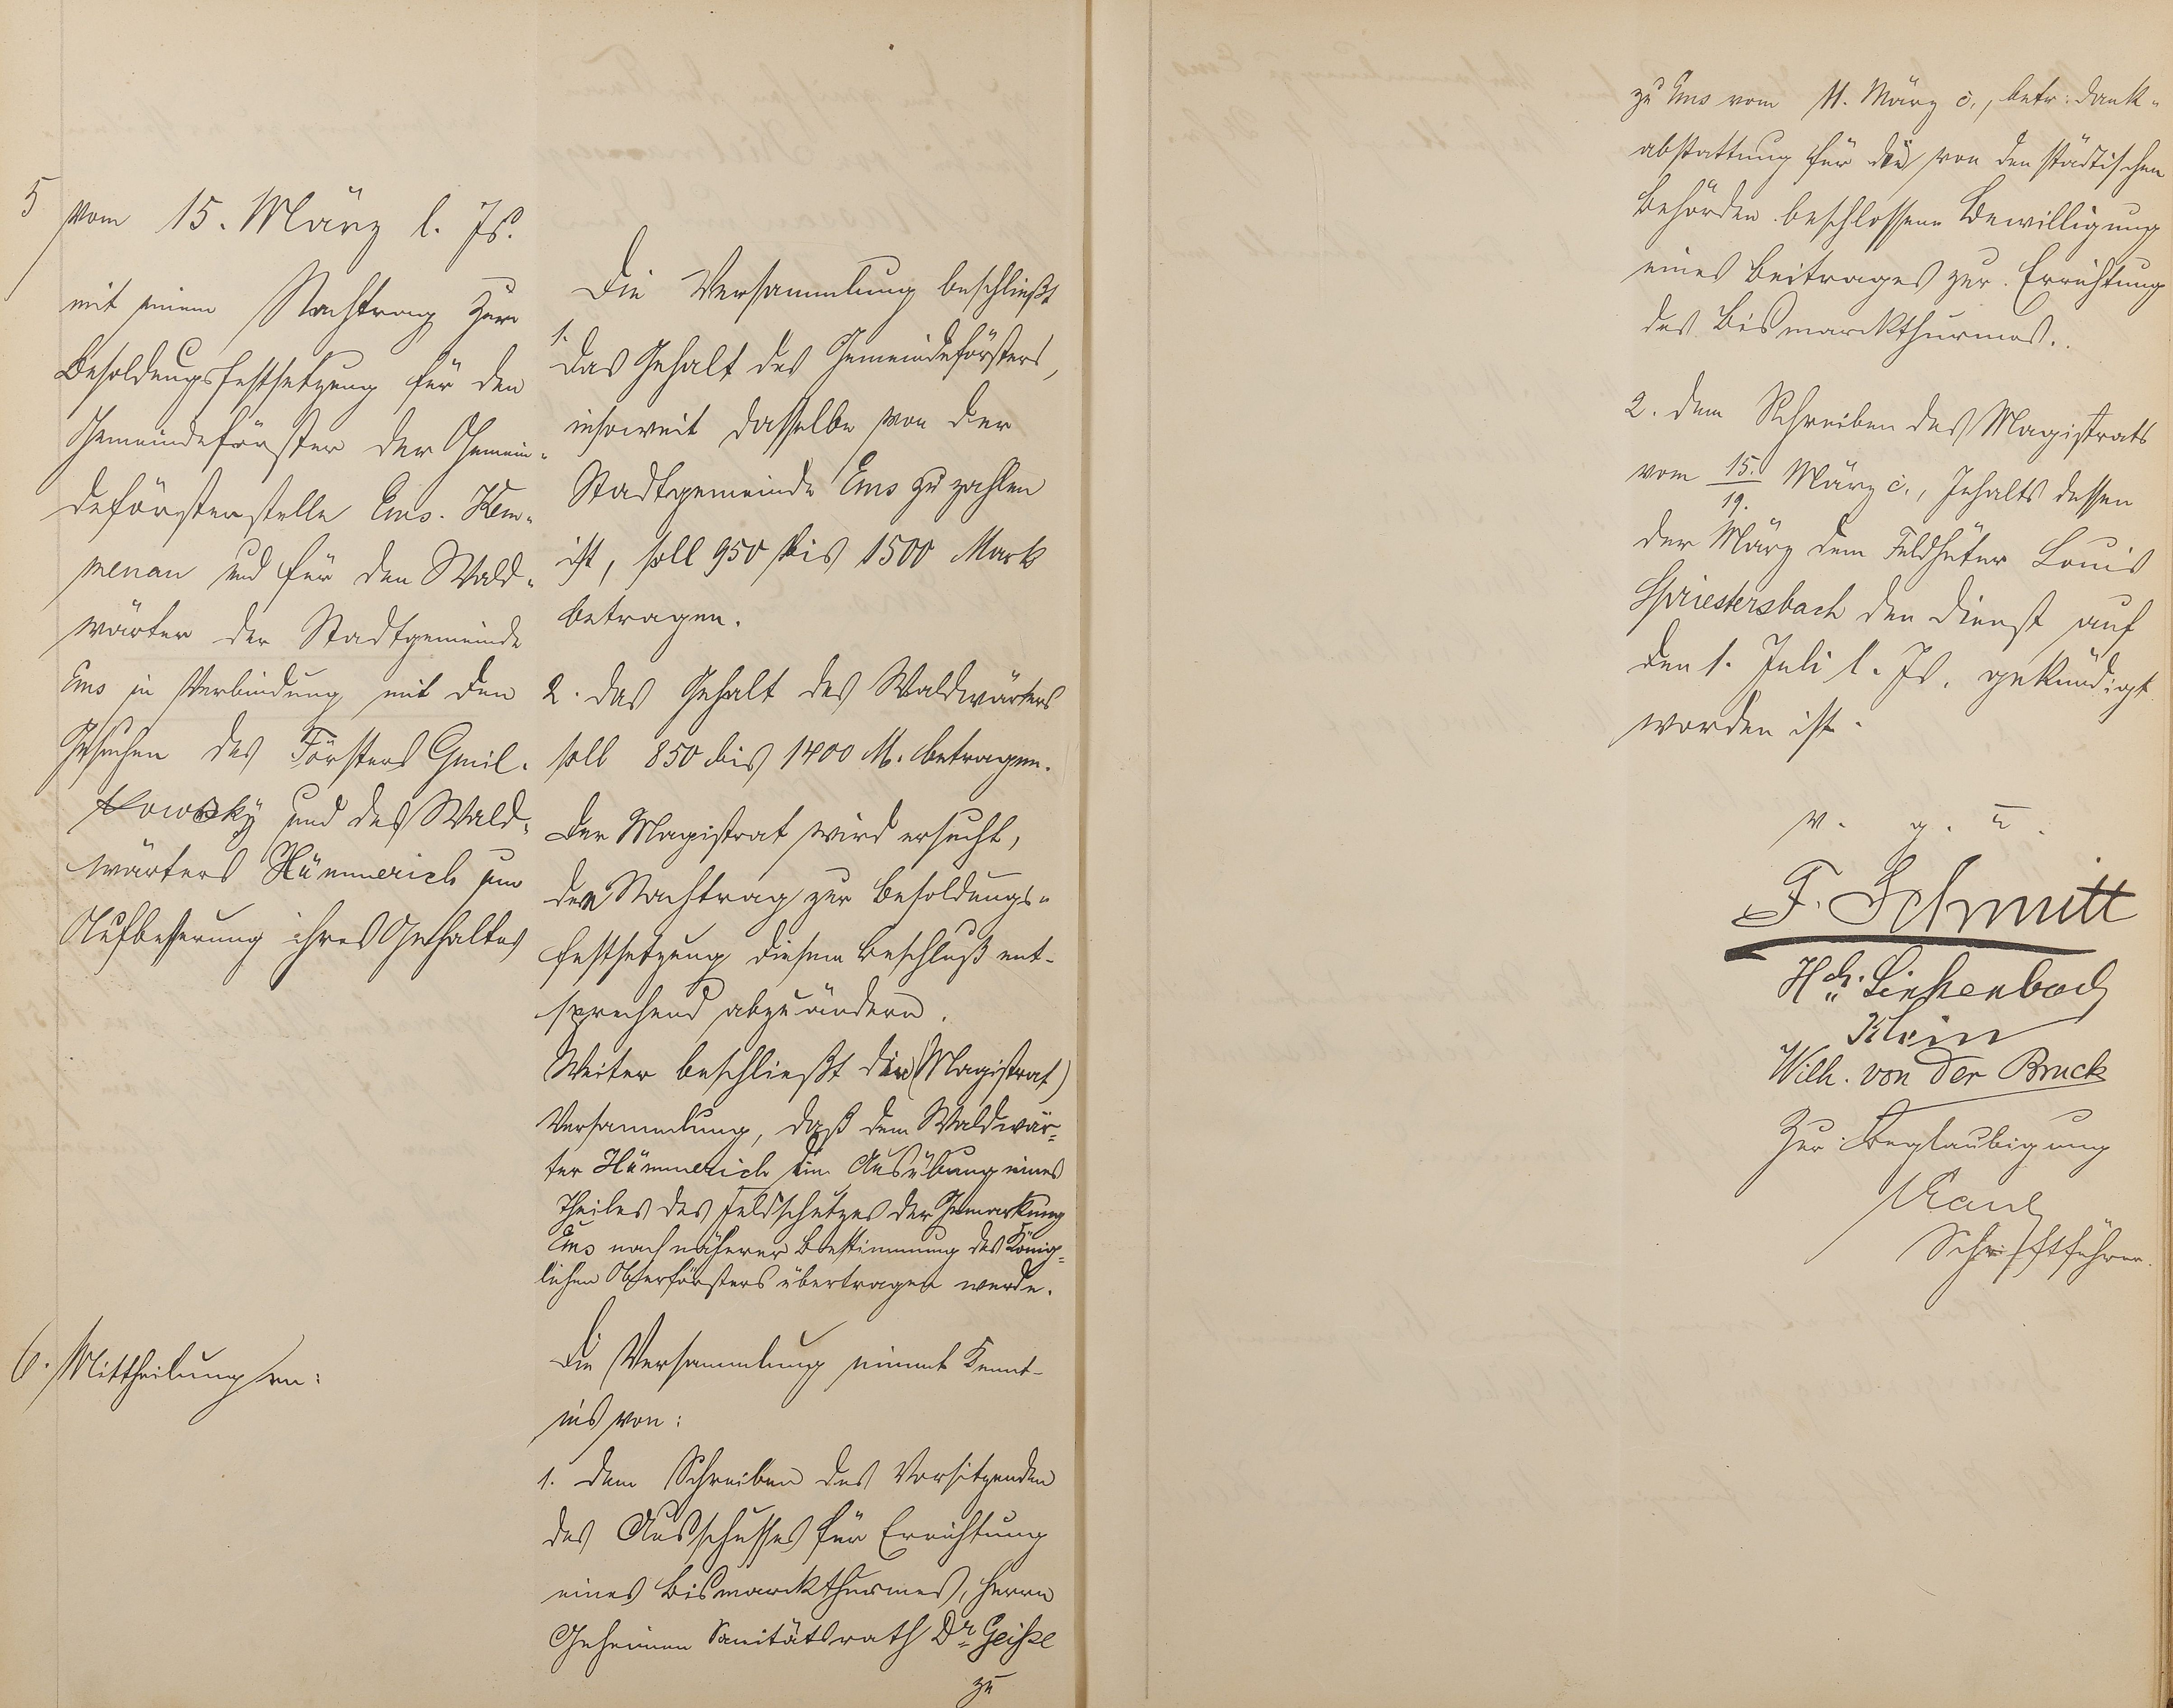 5 vom 15. März l. Js.
mit einem Nachtrag zur
Besoldungsfestsetzung für den
Gemeindeförster der Gemein-
deförsterstelle Ems-Kem-
menau und für den Wald-
wärter der Stadtgemeinde
Ems in Verbindung mit den
Gesuchen des Försters Gmil-
kowsky und des Wald-
wärters Hümmerich um
Aufbesserung ihres Gehaltes
Die Versammlung beschließt
1.
das Gehalt des Gemeindeförsters,
insoweit dasselbe von der
Stadtgemeinde Ems zu zahlen
ist, soll 950 bis 1500 Mark
betragen.
2. das Gehalt des Waldwärters
soll 850 bis 1400 M. betragen.
Der Magistrat wird ersucht,
den Nachtrag zur Besoldungs-
festsetzung diesem Beschluß ent-
sprechend abzuändern.
Weiter beschließt die (Magistrat)
Versammlung, daß dem Waldwär-
ter Hümmerich die Ausübung eines
Theiles des Feldschutzes der Gemarkung
Ems nach näherer Bestimmung des König-
lichen Oberförsters übertragen werde.
6. Mittheilungen:
Die Versammlung nimmt Kennt-
nis von:
1. dem Schreiben des Vorsitzenden
des Ausschusses für Errichtung
eines Bismarckthurmes, Herrn
Geheimen Sanitätsrath Dr. Geiße
zu
zu Ems vom 11. März c., betr: Dank-
abstattung für die von den städtischen
Behörden beschlossene Bewilligung
eines Beitrages zur Errichtung
des Bismarckthurmes.
2. dem Schreiben des Magistrats
vom 15./19. März c., Inhalts dessen
der März dem Feldhüter Louis
Spriestersbach den Dienst auf
den 1. Juli l. Js. gekündigt
worden ist.
v. g. u.
F. Schmitt
Hch. Linkenbach
Klein
Wilh. von der Bruck
Zur Beglaubigung
Kaul
Schriftführer.